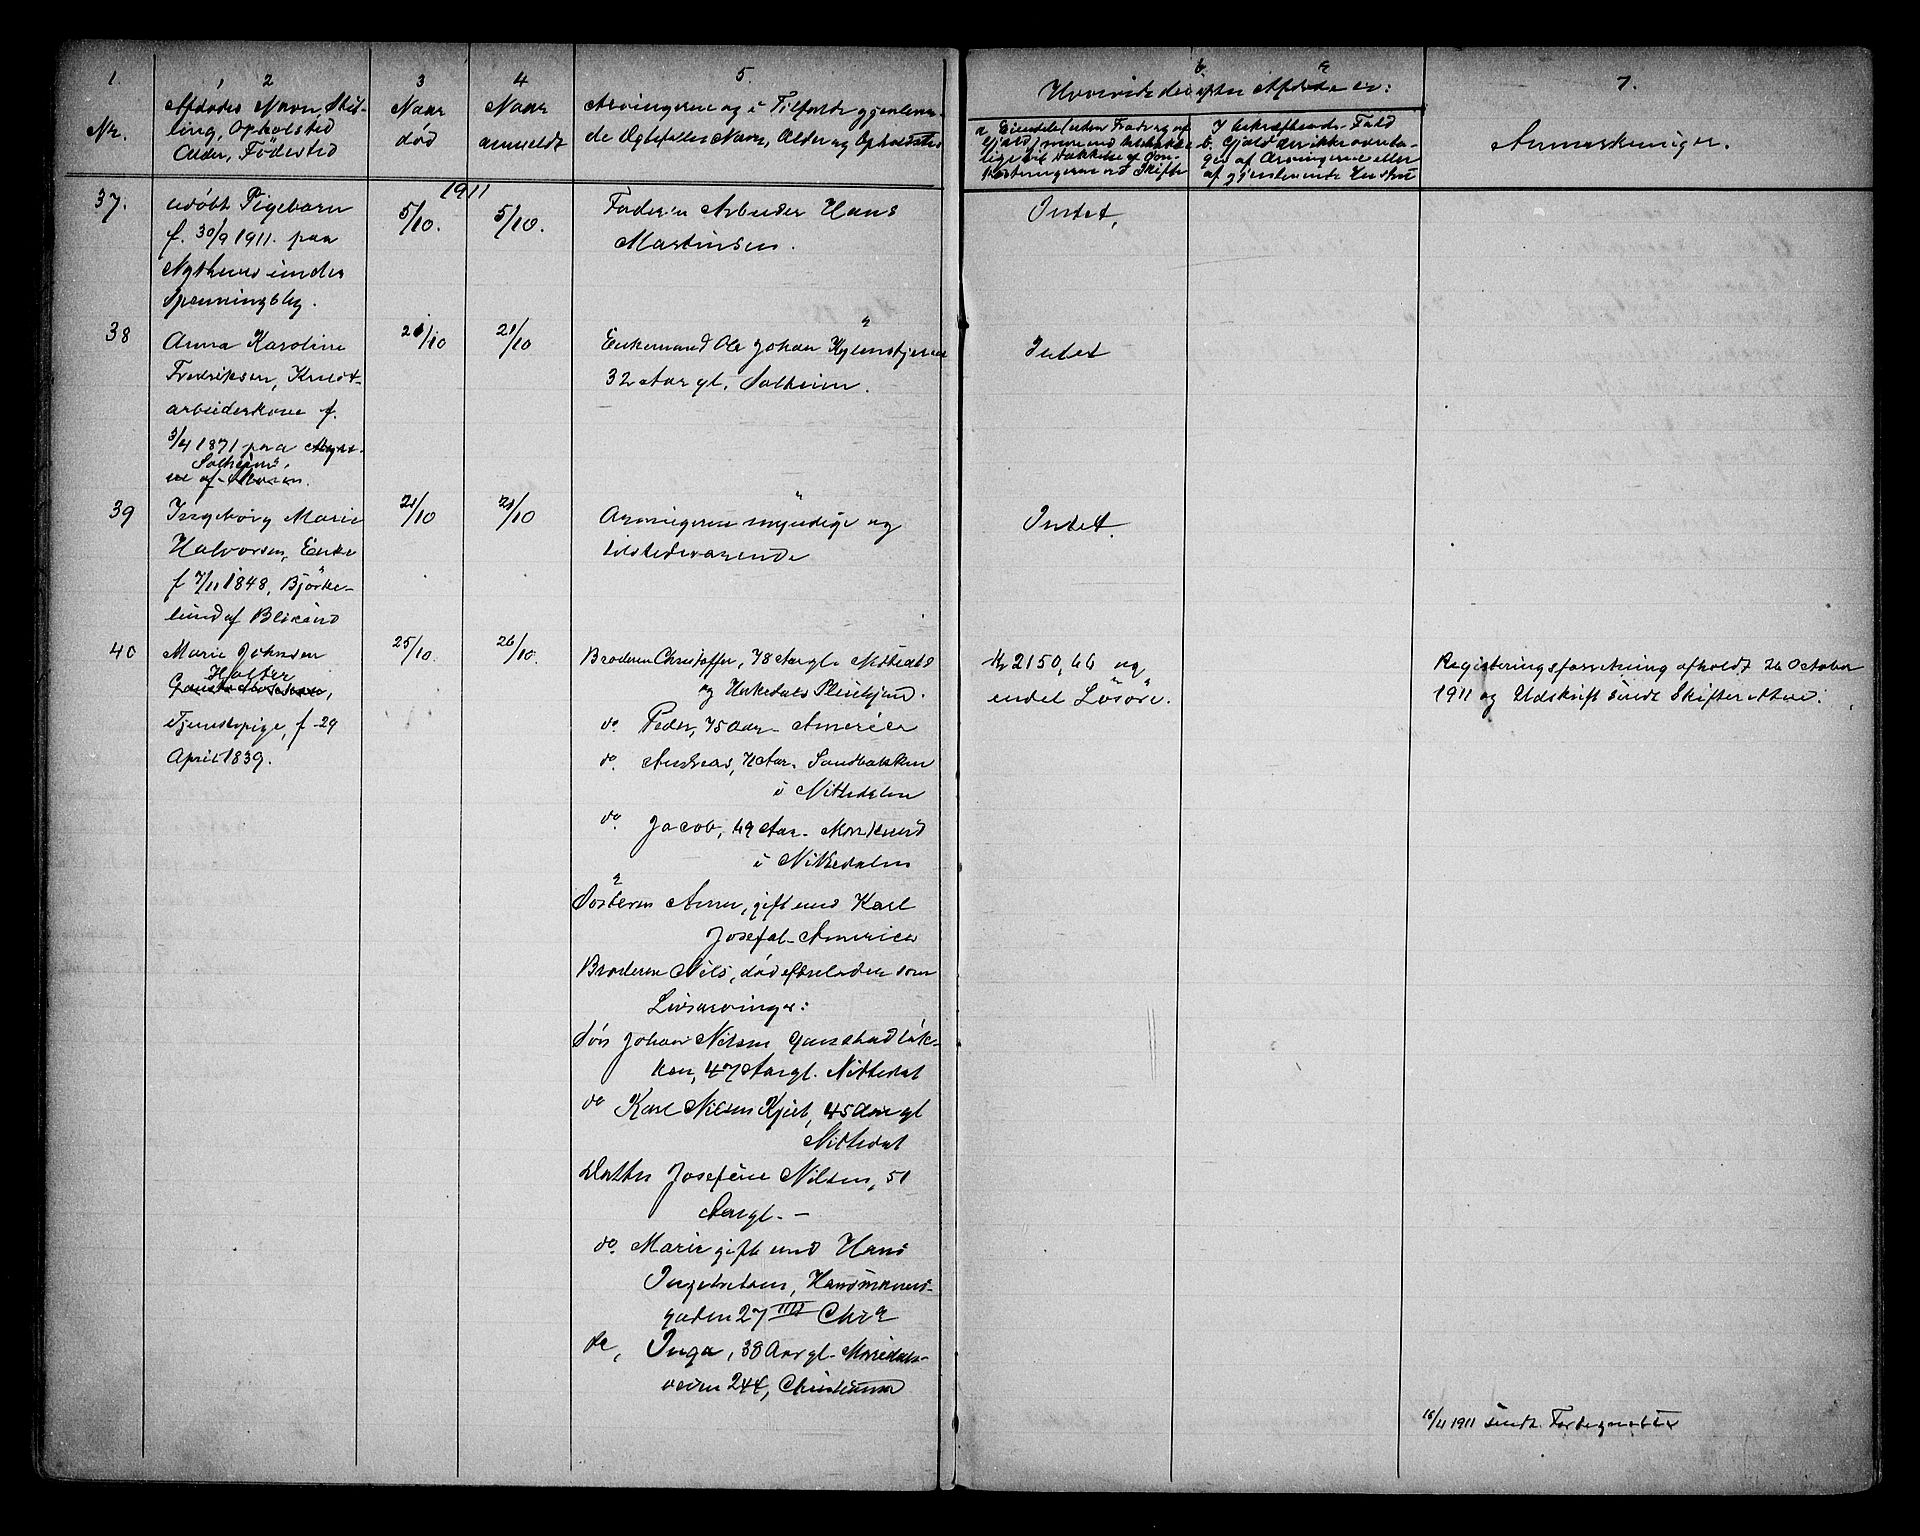 1.
2
3
4
5.
6
7.
Nr.
Afdødes Navn, Stil-
ling, Opholsted
Alder, Fødested
Naar
død
Naar
anmeldt
Arvingerne og i Tilfælde gjenleven-
de Ægtefælles Navn, Alder og Opholdssted
Hvorvidt der efter Afdøde er:
a. Eiendele (uden Fradrag af
Gjæld) mere end
Skifte
I bekræftende Fald
b. Gjæld der ikke overta-
ges af Arvingerne eller
af gjenlevende Enke
Anmerkninger.
1911
37.
udøbt Pigebarn
f. 30/9 1911. paa
under
Spenningsby.
5/10.
5/10.
Faderen Arbeider Hans
Martinsen.
Intet.
38
Anna Karoline
Fredriksen,
arbeiderkone f.
3/4 1871 paa
Solheim,
af
21/10
21/10
Enkemand Ole Johan
32 Aar gl. Solheim.
Intet
39
Ingeborg Marie
Halvorsen, Enke
f 7/11 1848, Björke-
lund af
21/10
21/10
Arvingerne myndige og
tilstedeværende
Intet.
40
Marie Johnsen
Holter
Tjenestepige, f 29
April 1839.
25/10.
26/10.
Broderen Christoffer, 78 Aar gl. Nittedal
og
do. Peder, 75 Aar - America
do. Andreas, Aar. Sandbakken
i Nittedalen
do. Jacob, 49 Aar -
i Nittedalen
Søsteren Anne, gift med Karl
Josefal - America
Broderen Nils, død efterladen som
Livsarvinger:
Søn Johan Nilsen
ken, 47 Aar gl. Nittedal
do Karl Nilsen Kjul, 45 Aar gl
Nittedal
Datter Josefine Nilsen, 51
Aar gl. -
do. Marie gift med Hans
Ingebretsen, Hausmanns-
gaden 27 IIII Chra
do, Inga, 38 Aar gl.
veien 244, Christiania
Kr 2150,66 og
endel Lösöre.
Registreringsforretning afholdt 26 October
1911 og Udskrift sendt Skifteretten.
15/11 1911 sendt